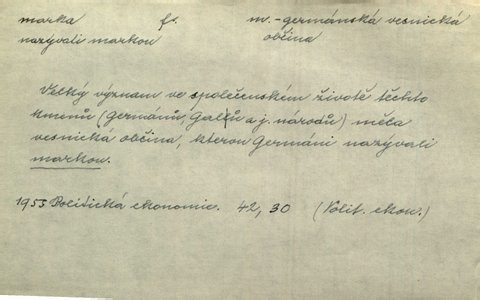 marka f. m. - germánská vesnická
nazývali markou občina
Velký význam ve společenském životě těchto
kmenů (Germánů, Galů a j. národů) měla
vesnická občina, kterou Germáni nazývali
markou.
1953 Politická ekonomie. 42, 30 (Polit. ekon.)